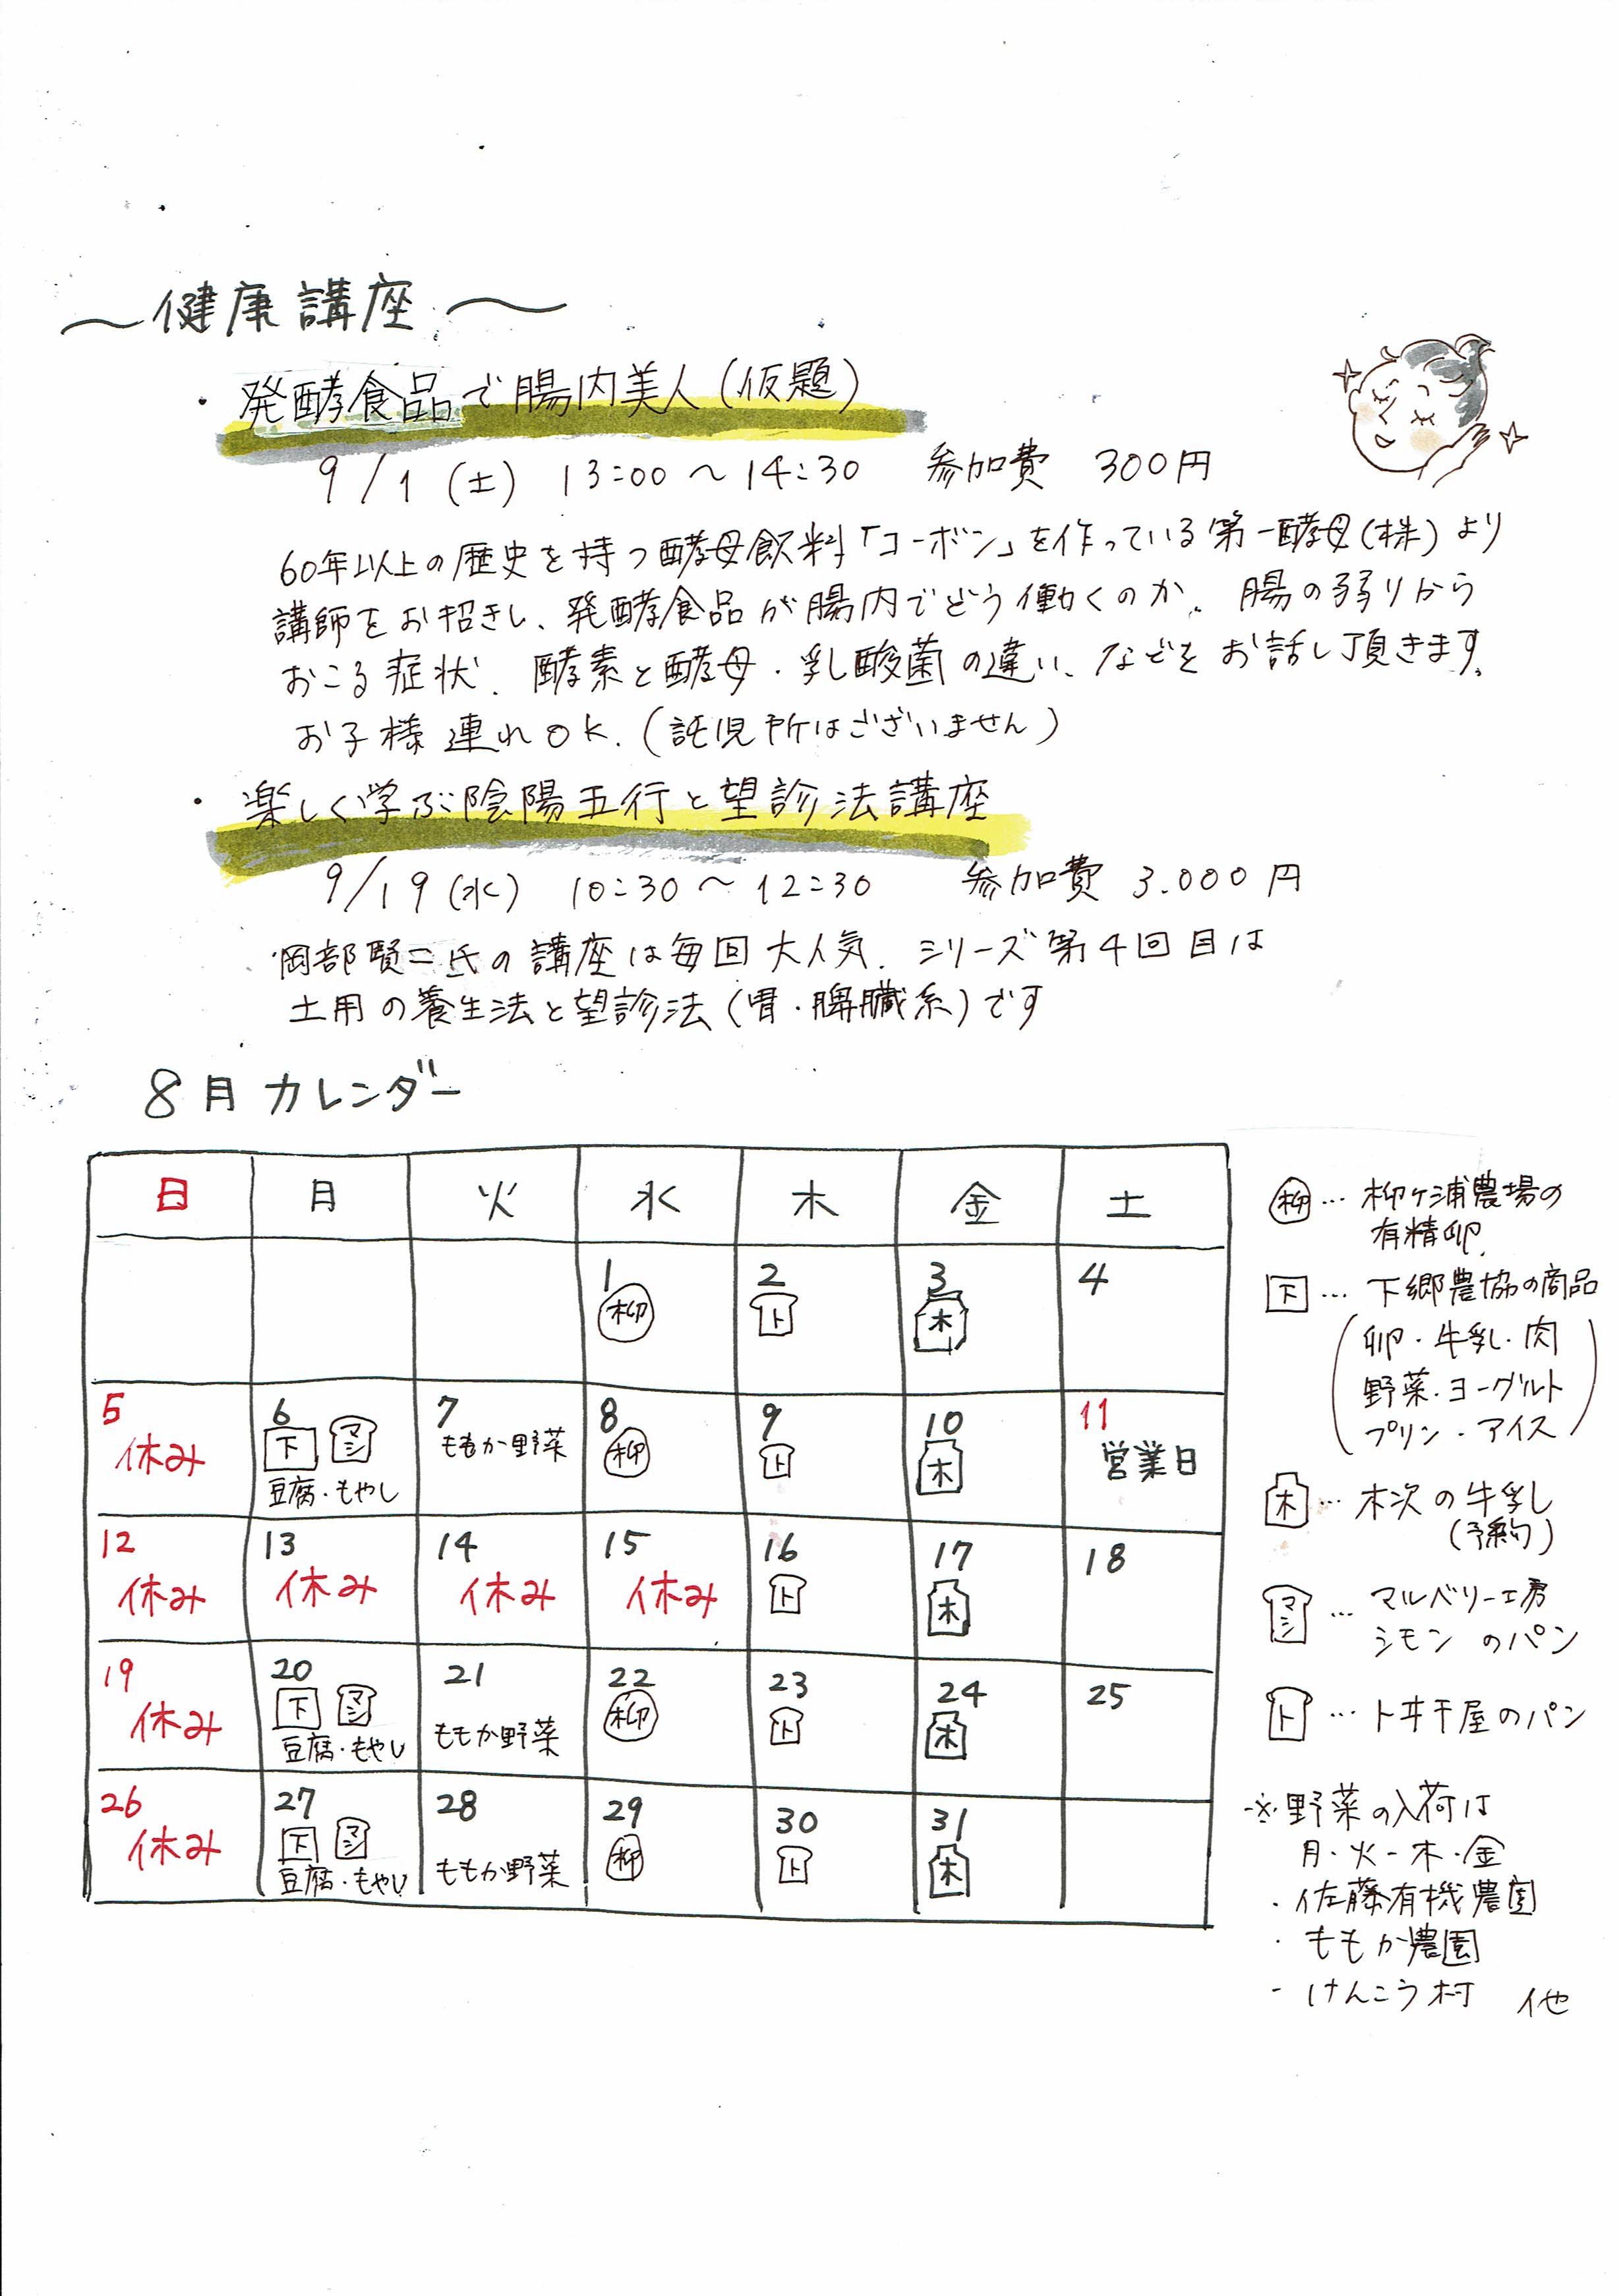 ～健康講座～
・発酵食品で腸内美人(仮題)
9/1(土) 13:00～14:30 参加費 300円
60年以上の歴史を持つ酵母飲料「コーボン」を作っている第一酵母(株)より
講師をお招きし、発酵食品が腸内でどう働くのか、腸の弱りから
おこる症状、酵素と酵母・乳酸菌の違い、などをお話し頂きます。
お子様連れOK.(託児所はございません)
・楽しく学ぶ陰陽五行と望診法講座
9/19(水) 10:30～12:30 参加費 3.000円
岡部賢二氏の講座は毎回大人気. シリーズ第4回目は
土用の養生法と望診法(胃・脾臓系)です
8月カレンダー
日 月 火 水 木 金 土
1 2 3 4
柳 ト 木
5 6 7 8 9 10 11
休み 下 マシ ももか野菜 柳 ト 木 営業日
豆腐・もやし
12 13 14 15 16 17 18
休み 休み 休み 休み ト 木
19 20 21 22 23 24 25
休み 下 マシ ももか野菜 柳 ト 木
豆腐・もやし
26 27 28 29 30 31
休み 下 マシ ももか野菜 柳 ト 木
豆腐・もやし
柳 … 柳ヶ浦農場の
有精卵
下 … 下郷農協の商品
(卵・牛乳・肉
野菜・ヨーグルト
プリン・アイス)
木 … 木次の牛乳
(予約)
マシ … マルベリー工房
シモンのパン
ト … トキ干屋のパン
※野菜の入荷は
月・火・木・金
・佐藤有機農園
・ももか農園
・けんこう村 他